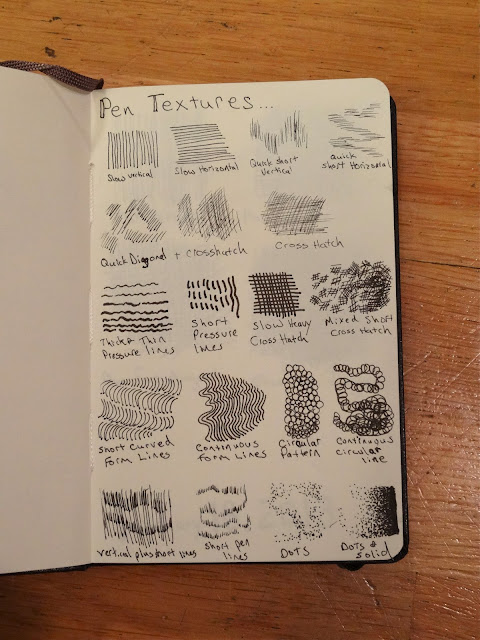 Pen Textures...
Slow vertical
Slow Horizontal
Quick short
vertical
quick
short Horizontal
Quick Diagonal + crosshatch
Cross Hatch
Thick & Thin
Pressure lines
Short
Pressure
lines
Slow Heavy
Cross Hatch
Mixed Short
Cross Hatch
Short Curved
Form Lines
Continuous
Form Lines
Circular
Pattern
Continuous
circular
line
vertical plus short lines
short pen
lines
DOTS
DOTS &
Solid